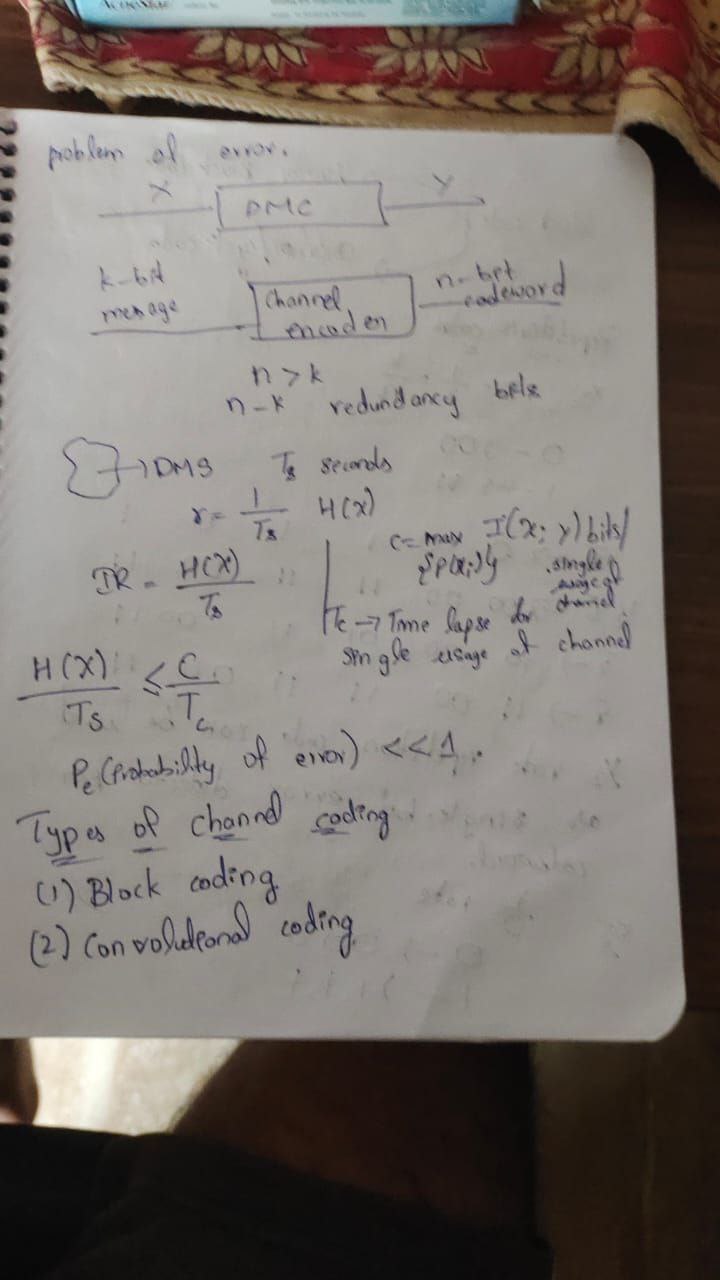 problem of error.
X DMC Y
k-bit message
Channel encoder
n-bit codeword
n > k
n-k redundancy bits
DMS Ts seconds
r = 1/Ts H(X)
IR = H(X)/Ts
C = max I(X; Y) bits/
{p(xi)} single usage of channel
Tc → Time lapse for
single usage of channel
H(X)/Ts ≤ C/Tc
Pe (Probability of error) << 1.
Types of channel coding
(1) Block coding
(2) Convolutional coding